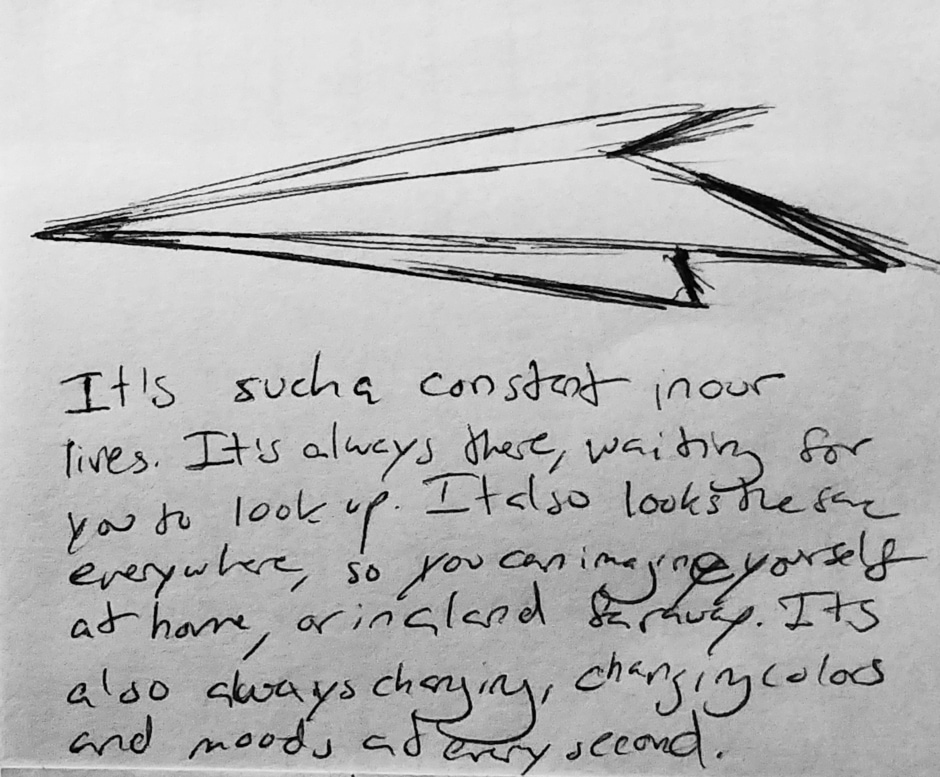 It's such a constant in our
lives. It's always there, waiting for
you to look up. It also looks the same
everywhere, so you can imagine yourself
at home, or in a land far away. It's
also always changing, changing colors
and moods at every second.